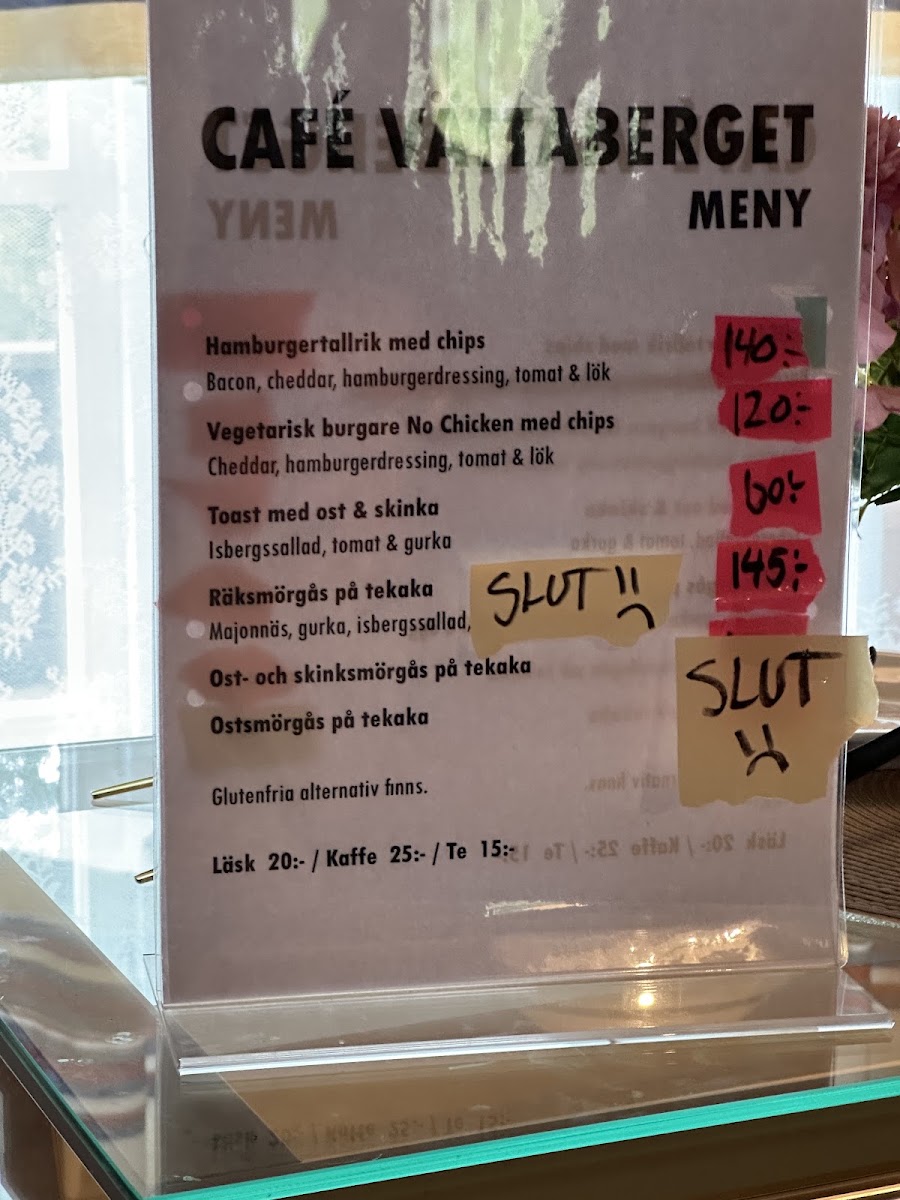 CAFÉ VÅTTABERGET
MENY
Hamburgertallrik med chips 140:-
Bacon, cheddar, hamburgerdressing, tomat & lök
Vegetarisk burgare No Chicken med chips 120:-
Cheddar, hamburgerdressing, tomat & lök
Toast med ost & skinka 60:-
Isbergssallad, tomat & gurka
Räksmörgås på tekaka SLUT 145:-
Majonnäs, gurka, isbergssallad,
Ost- och skinksmörgås på tekaka SLUT
Ostsmörgås på tekaka
Glutenfria alternativ finns.
Läsk 20:- / Kaffe 25:- / Te 15:-